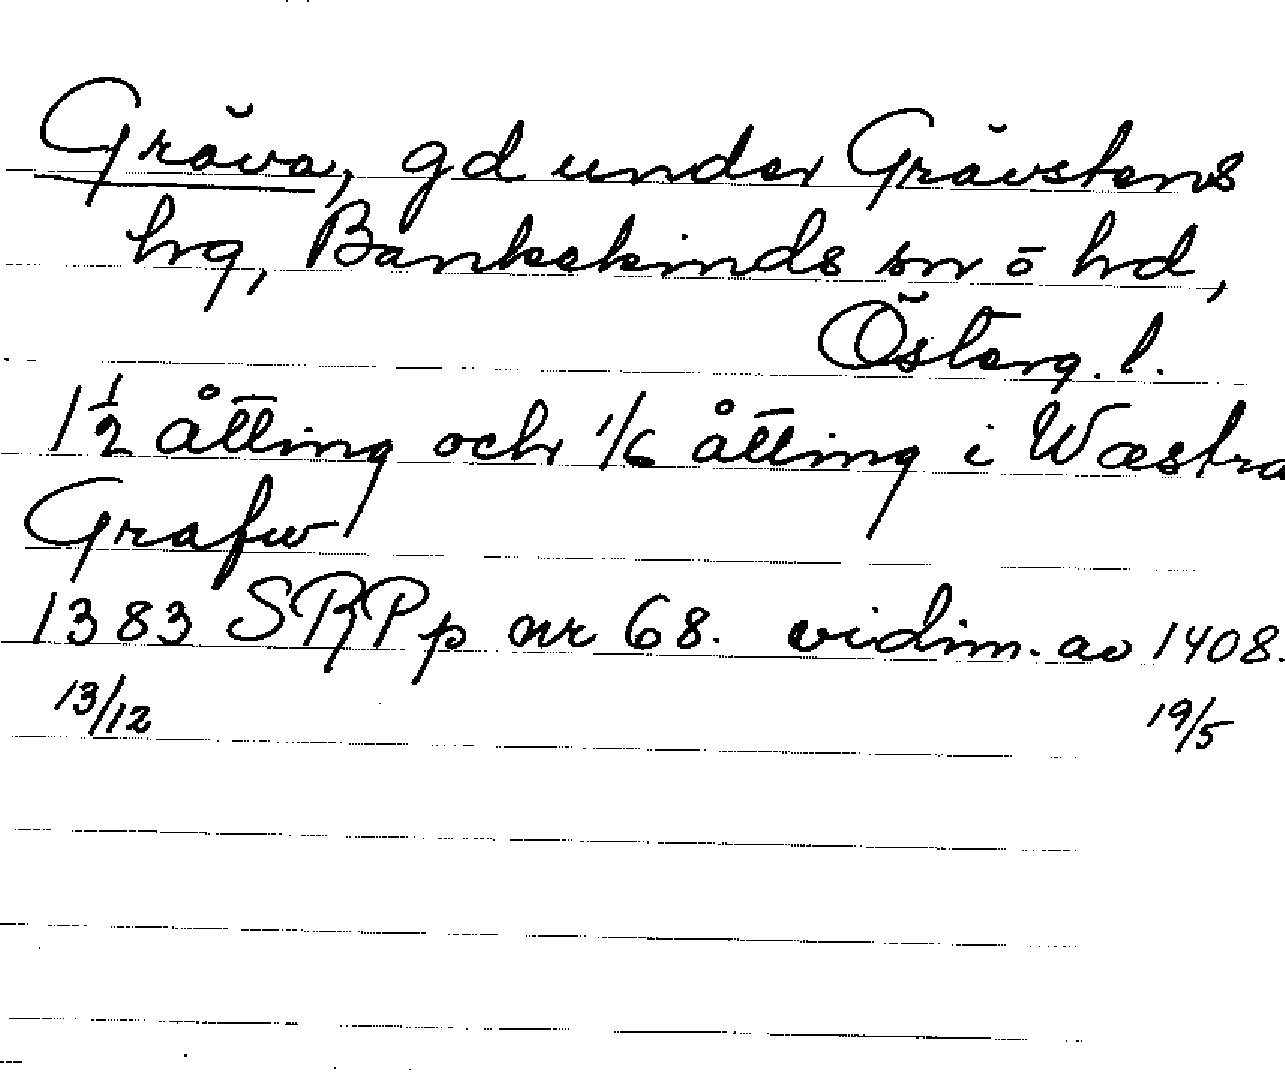 Gräva, gd under Grävstens
hrg, Bankekinds sn o hd,
Österg. l.
1 1/2 åtting och 1/6 åtting i Wæstra
Grafw
1383 SRPp nr 68. vidim. av 1408.
13/12 19/5